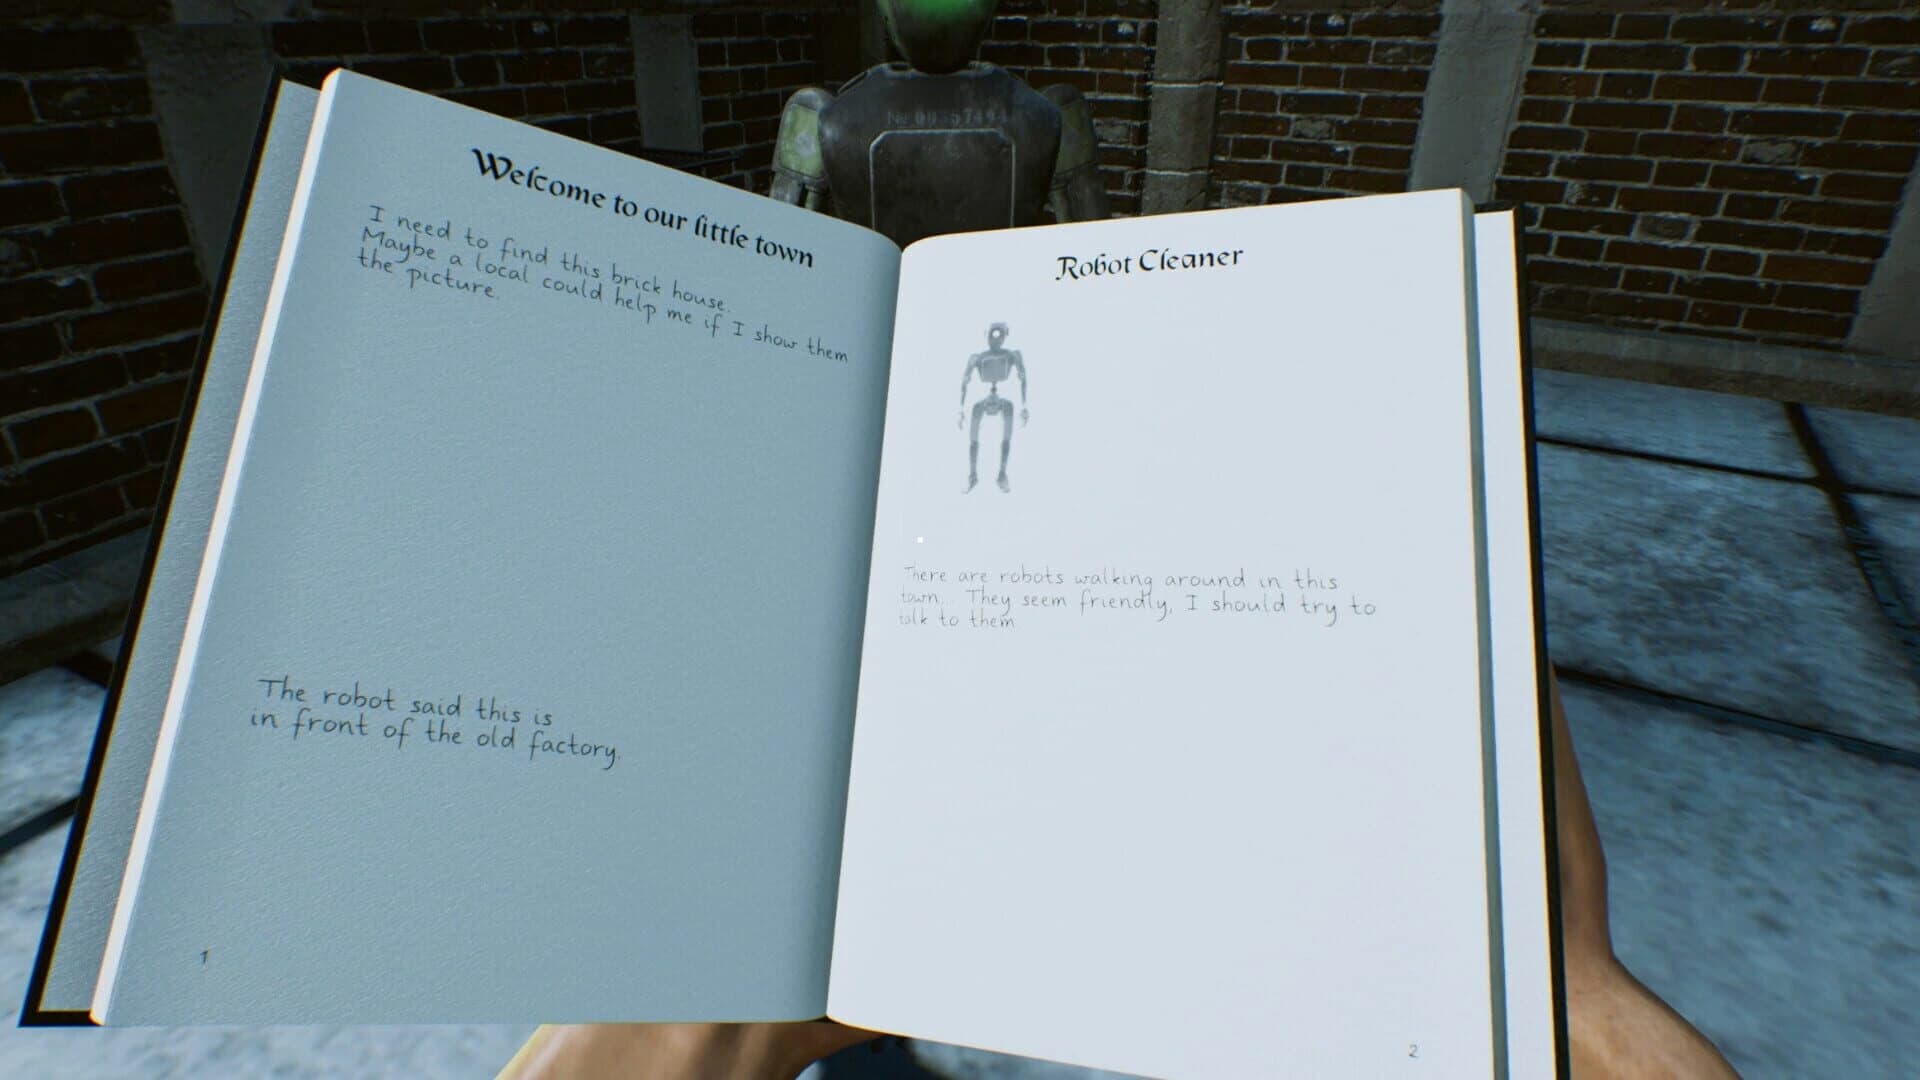 Welcome to our little town
I need to find this brick house.
Maybe a local could help me if I show them
the picture.
The robot said this is
in front of the old factory.
1
Robot Cleaner
There are robots walking around in this
town... They seem friendly, I should try to
talk to them
2